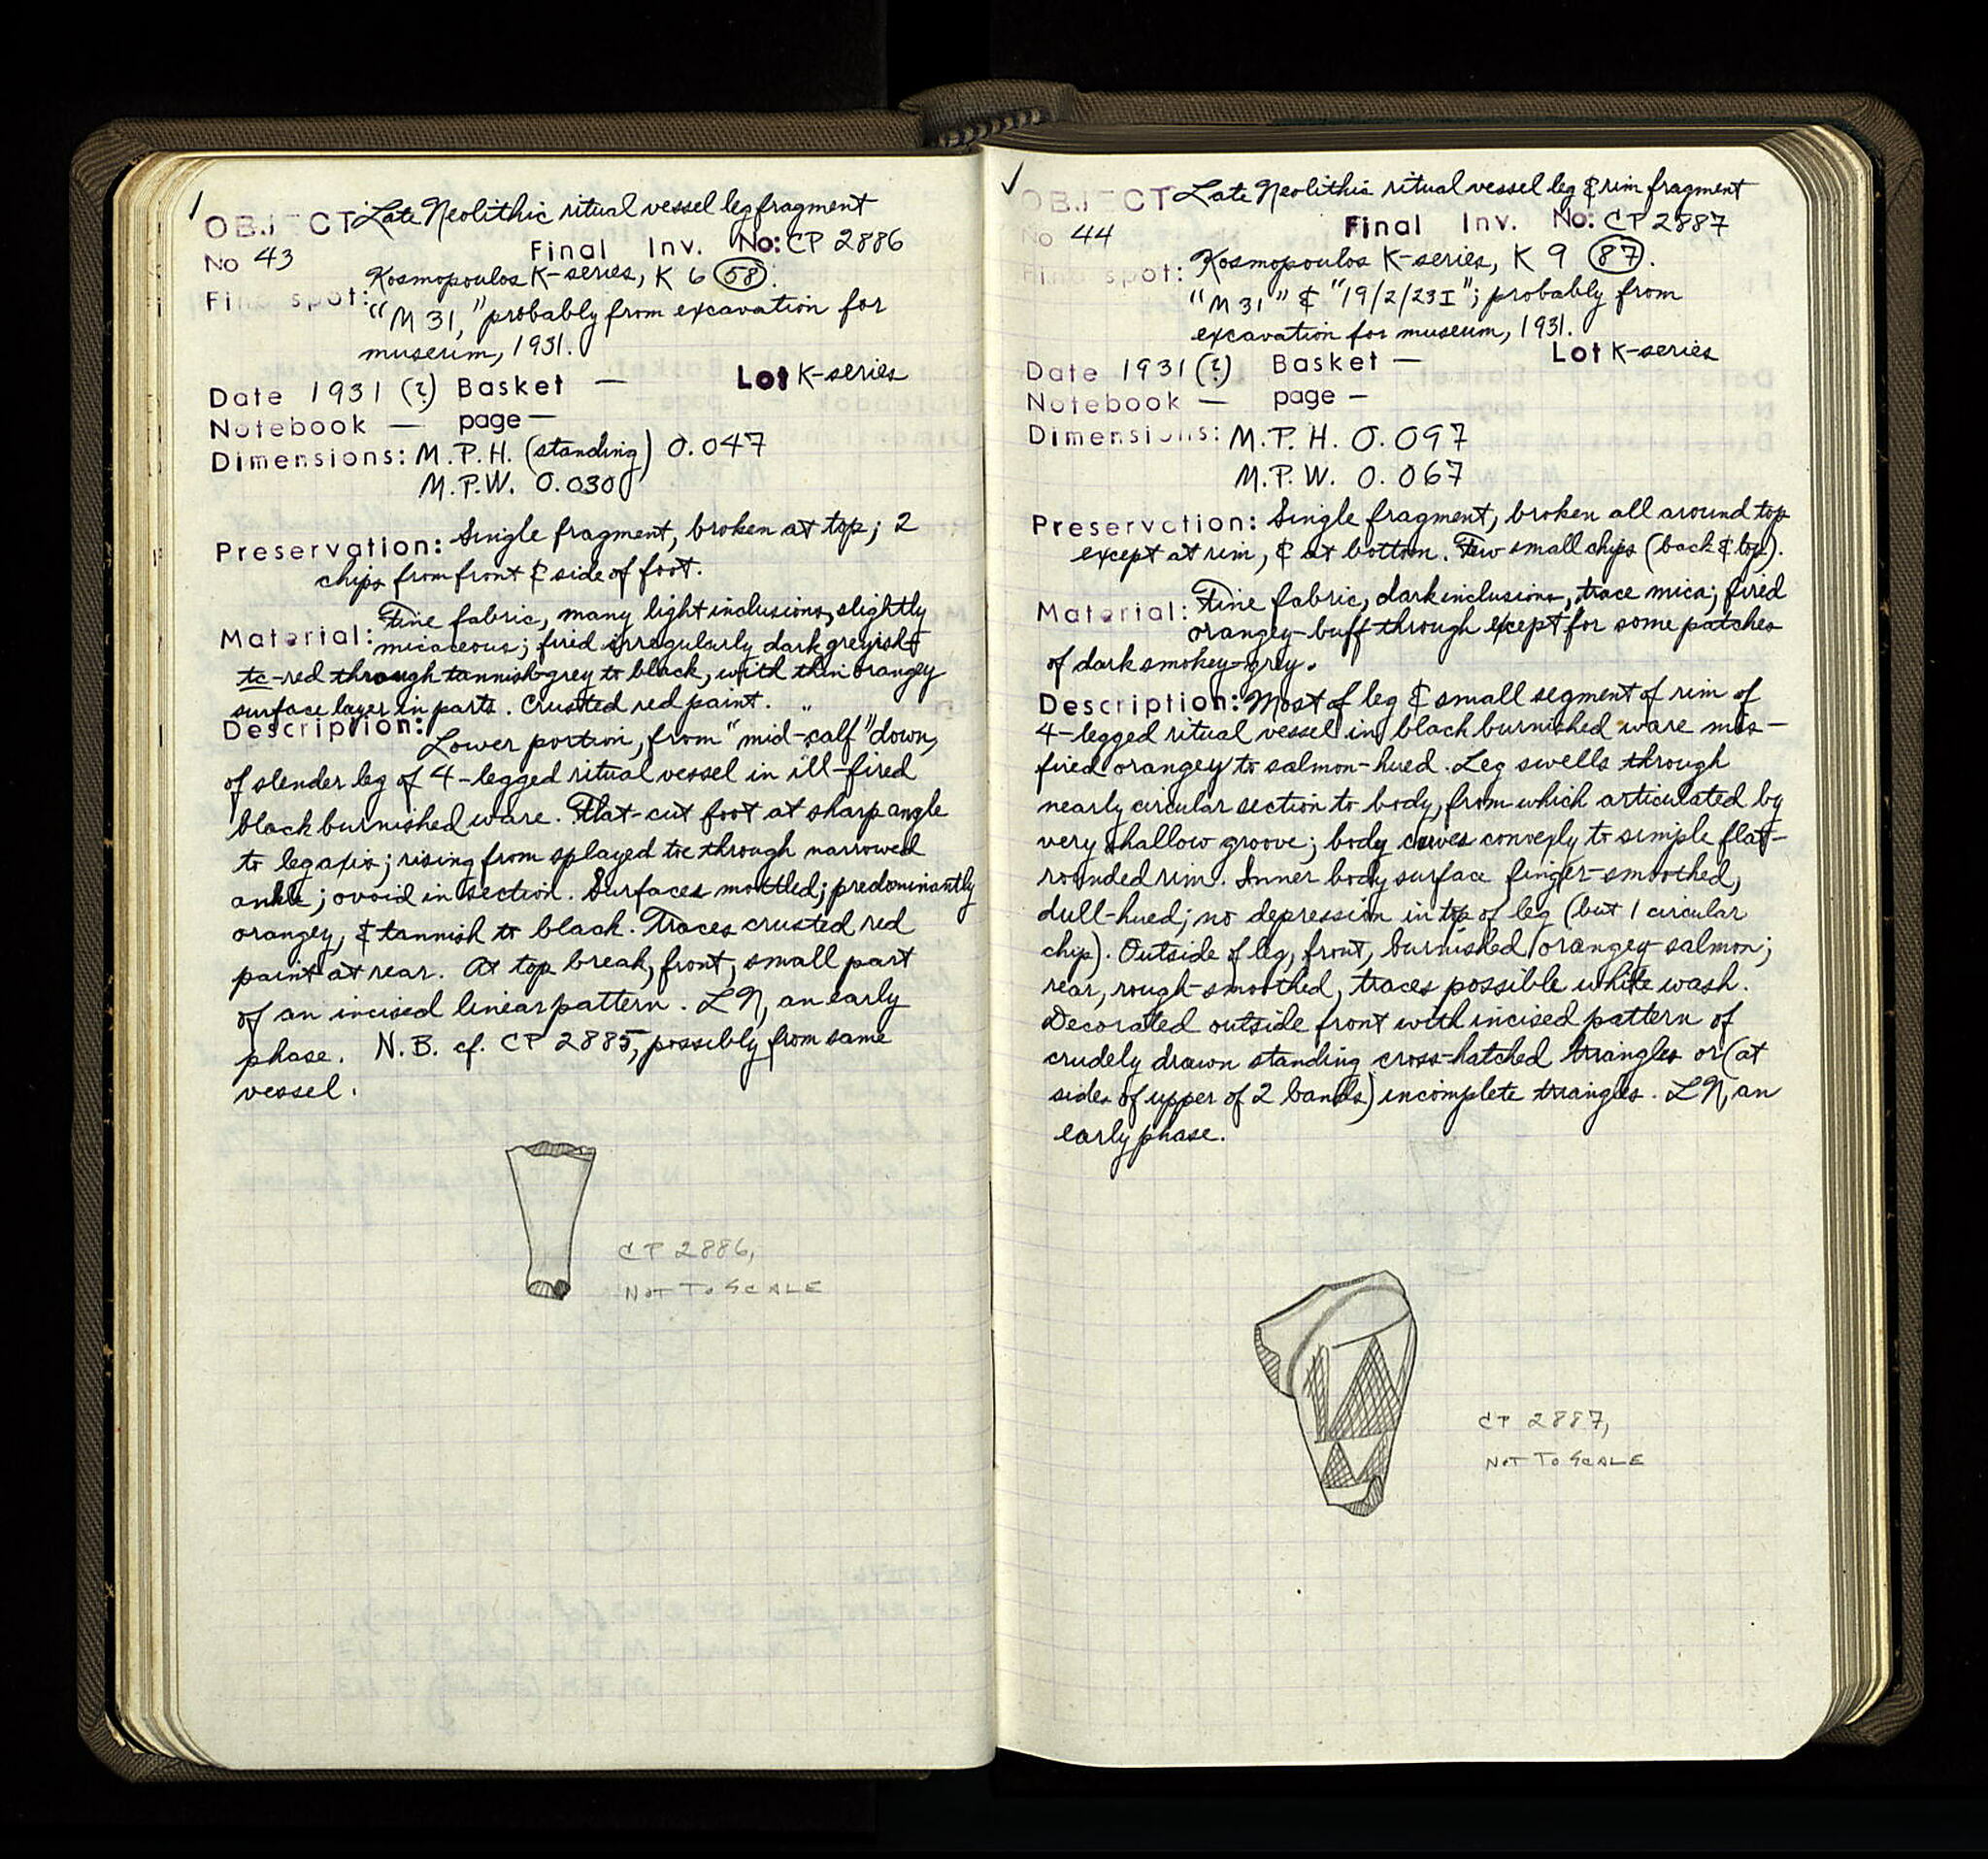 OBJECT Late Neolithic ritual vessel leg fragment
No 43 Final Inv. No: CP 2886
Kosmopoulos K-series, K 6 (58).
Find spot: "M 31," probably from excavation for
museum, 1931.
Date 1931 (?) Basket — Lot K-series
Notebook — page —
Dimensions: M.P.H. (standing) 0.047
M.P.W. 0.030
Preservation: Single fragment, broken at top; 2
chips from front & side of foot.
Fine fabric, many light inclusions, slightly
Material: micaceous; fired irregularly dark greyish
to-red through tannish-grey to black, with thin orangey
surface layer in parts. Crusted red paint.
Description: Lower portion, from "mid-calf" down,
of slender leg of 4-legged ritual vessel in ill-fired
black burnished ware. Flat-cut foot at sharp angle
to leg axis; rising from splayed toe through narrowed
ankle; ovoid in section. Surfaces mottled; predominantly
orangey, & tannish to black. Traces crusted red
paint at rear. At top break, front, small part
of an incised linear pattern. LN, an early
phase. N.B. cf. CP 2885, possibly from same
vessel.
CP 2886,
NOT TO SCALE
OBJECT Late Neolithic ritual vessel leg & rim fragment
No 44 Final Inv. No: CP 2887
Find spot: Kosmopoulos K-series, K 9 (87).
"M 31" & "19/2/23 I"; probably from
excavation for museum, 1931.
Date 1931 (?) Basket — Lot K-series
Notebook — page —
Dimensions: M.P.H. 0.097
M.P.W. 0.067
Preservation: Single fragment, broken all around top
except at rim, & at bottom. Few small chips (back & top).
Material: Fine fabric, dark inclusions, trace mica; fired
orangey-buff through except for some patches
of dark smokey-grey.
Description: Most of leg & small segment of rim of
4-legged ritual vessel in black burnished ware mis-
fired orangey to salmon-hued. Leg swells through
nearly circular section to body, from which articulated by
very shallow groove; body curves convexly to simple flat-
rounded rim. Inner body surface finger-smoothed,
dull-hued; no depression in top of leg (but 1 circular
chip). Outside of leg, front, burnished orangey-salmon;
rear, rough-smoothed, traces possible white wash.
Decorated outside front with incised pattern of
crudely drawn standing cross-hatched triangles or (at
sides of upper of 2 bands) incomplete triangles. LN, an
early phase.
CP 2887,
NOT TO SCALE